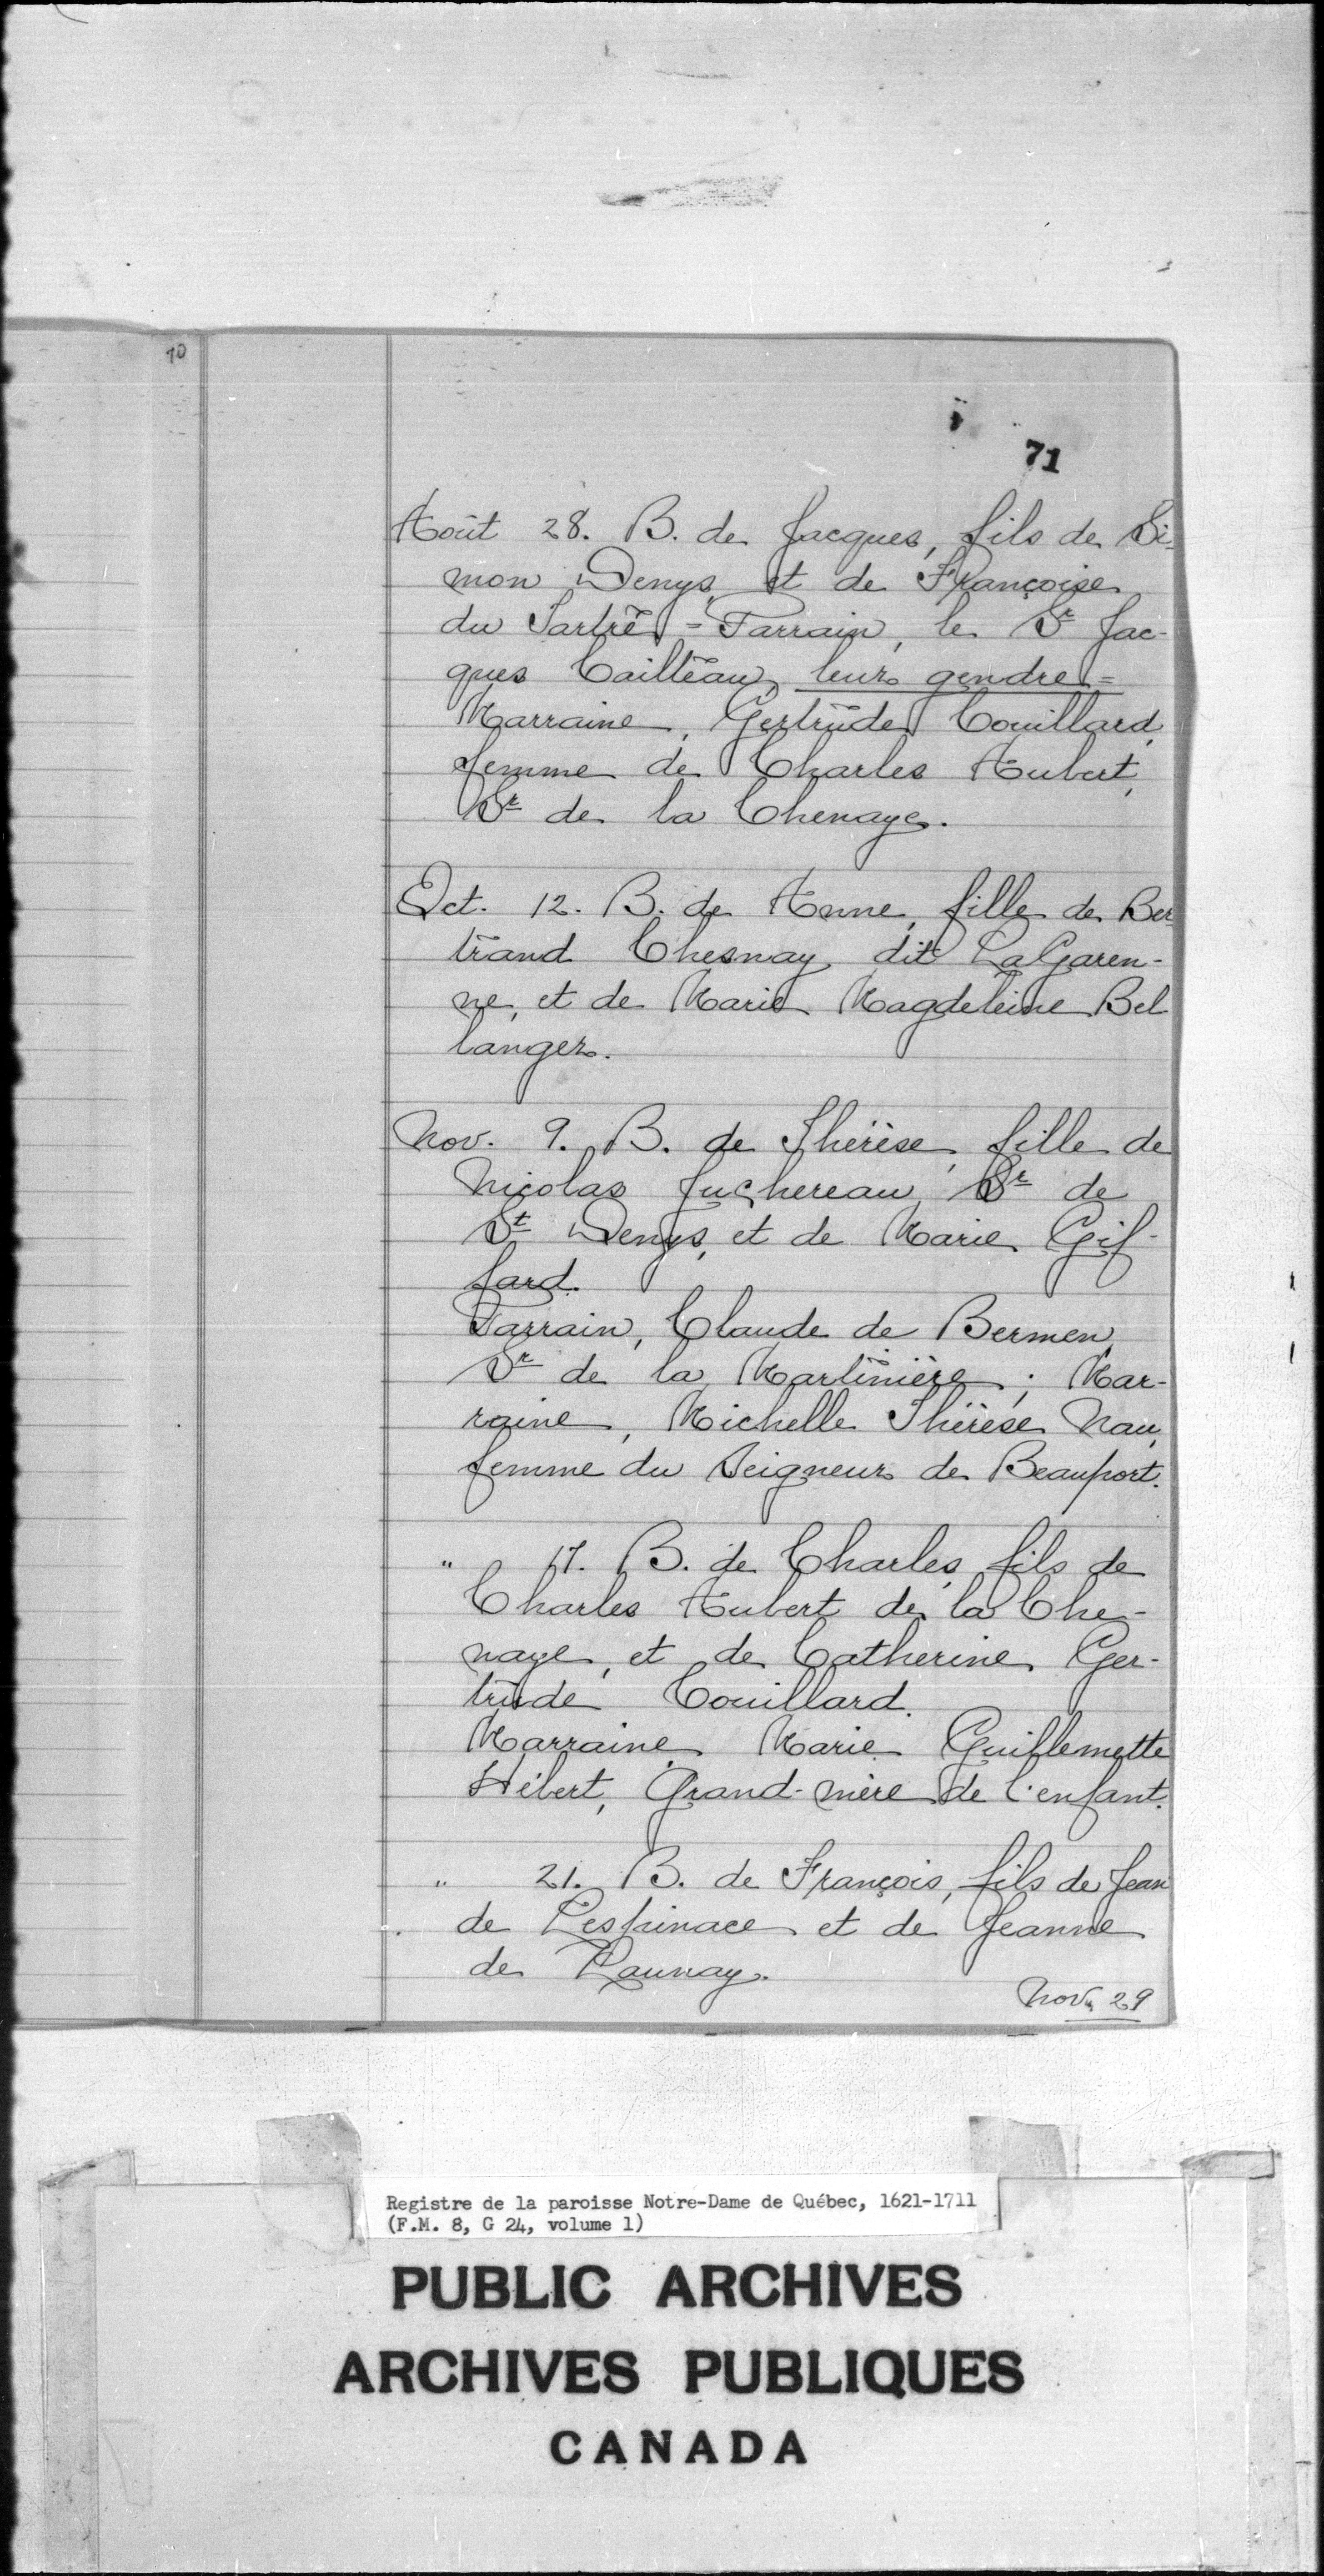 70
71
Août 28. B. de Jacques, fils de Si-
mon Denys, et de Françoise
du Tartre = Parrain, le Sr Jac-
ques Cailleteau, leur gendre =
Marraine, Gertrude Couillard,
femme de Charles Aubert,
Sr de la Chenaye.
Oct. 12. B. de Anne, fille de Ber-
trand Chesnay dit LaGaren-
ne, et de Marie Magdeleine Bel
langer.
Nov. 9. B. de Thérèse, fille de
Nicolas Juchereau, Sr de
St Denys, et de Marie Gif-
fard.
Parrain, Claude de Bermen,
Sr de la Martinière; Mar-
raine, Michelle Thérèse Nau,
femme du Seigneur de Beauport.
" 17. B. de Charles, fils de
Charles Aubert de la Che-
naye, et de Catherine Ger-
trude Couillard.
Marraine, Marie Guillemette
Hébert, Grand-mère de l'enfant.
" 21. B. de François, fils de Jean
de Lespinace et de Jeanne
de Launay.
Nov. 29
Registre de la paroisse Notre-Dame de Québec, 1621-1711
(F.M. 8, G 24, volume 1)
PUBLIC ARCHIVES
ARCHIVES PUBLIQUES
CANADA